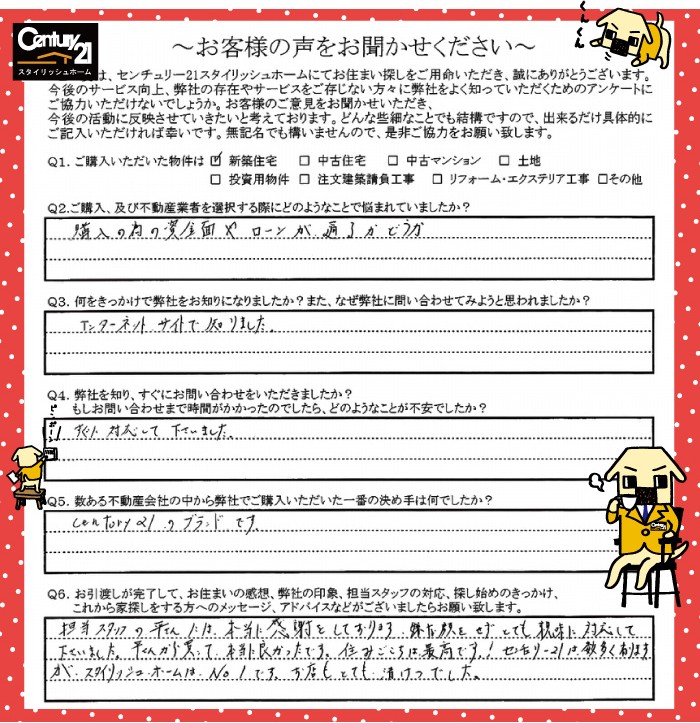 Century 21
スタイリッシュホーム
くんくん
～お客様の声をお聞かせください～
は、センチュリー21スタイリッシュホームにてお住まい探しをご用命いただき、誠にありがとうございます。
今後のサービス向上、弊社の存在やサービスをご存じない方々に弊社をよく知っていただくためのアンケートに
ご協力いただけないでしょうか。お客様のご意見をお聞かせいただき、
今後の活動に反映させていきたいと考えております。どんな些細なことでも結構ですので、出来るだけ具体的に
ご記入いただければ幸いです。無記名でも構いませんので、是非ご協力をお願い致します。
Q1. ご購入いただいた物件は ☑ 新築住宅 □ 中古住宅 □ 中古マンション □ 土地
□ 投資用物件 □ 注文建築請負工事 □ リフォーム・エクステリア工事 □その他
Q2.ご購入、及び不動産業者を選択する際にどのようなことで悩まれていましたか？
購入の為の資金面やローンが通るかどうか
Q3. 何をきっかけで弊社をお知りになりましたか？また、なぜ弊社に問い合わせてみようと思われましたか？
インターネットサイトで知りました。
Q4. 弊社を知り、すぐにお問い合わせをいただきましたか？
もしお問い合わせまで時間がかかったのでしたら、どのようなことが不安でしたか？
ピンポーン
すぐに対応して下さいました。
Q5. 数ある不動産会社の中から弊社でご購入いただいた一番の決め手は何でしたか？
Century21のブランドです。
Q6. お引渡しが完了して、お住まいの感想、弊社の印象、担当スタッフの対応、探し始めのきっかけ、
これから家探しをする方へのメッセージ、アドバイスなどがございましたらお願い致します。
担当スタッフの平さんには、本当に感謝をしております。嫌な顔をせずとても親味に対応して
下さいました。平さんから買って、本当に良かったです。住みごこちは最高です！センチュリー21は数多くありますが、
スタイリッシュホームは、No1です。お店もとても